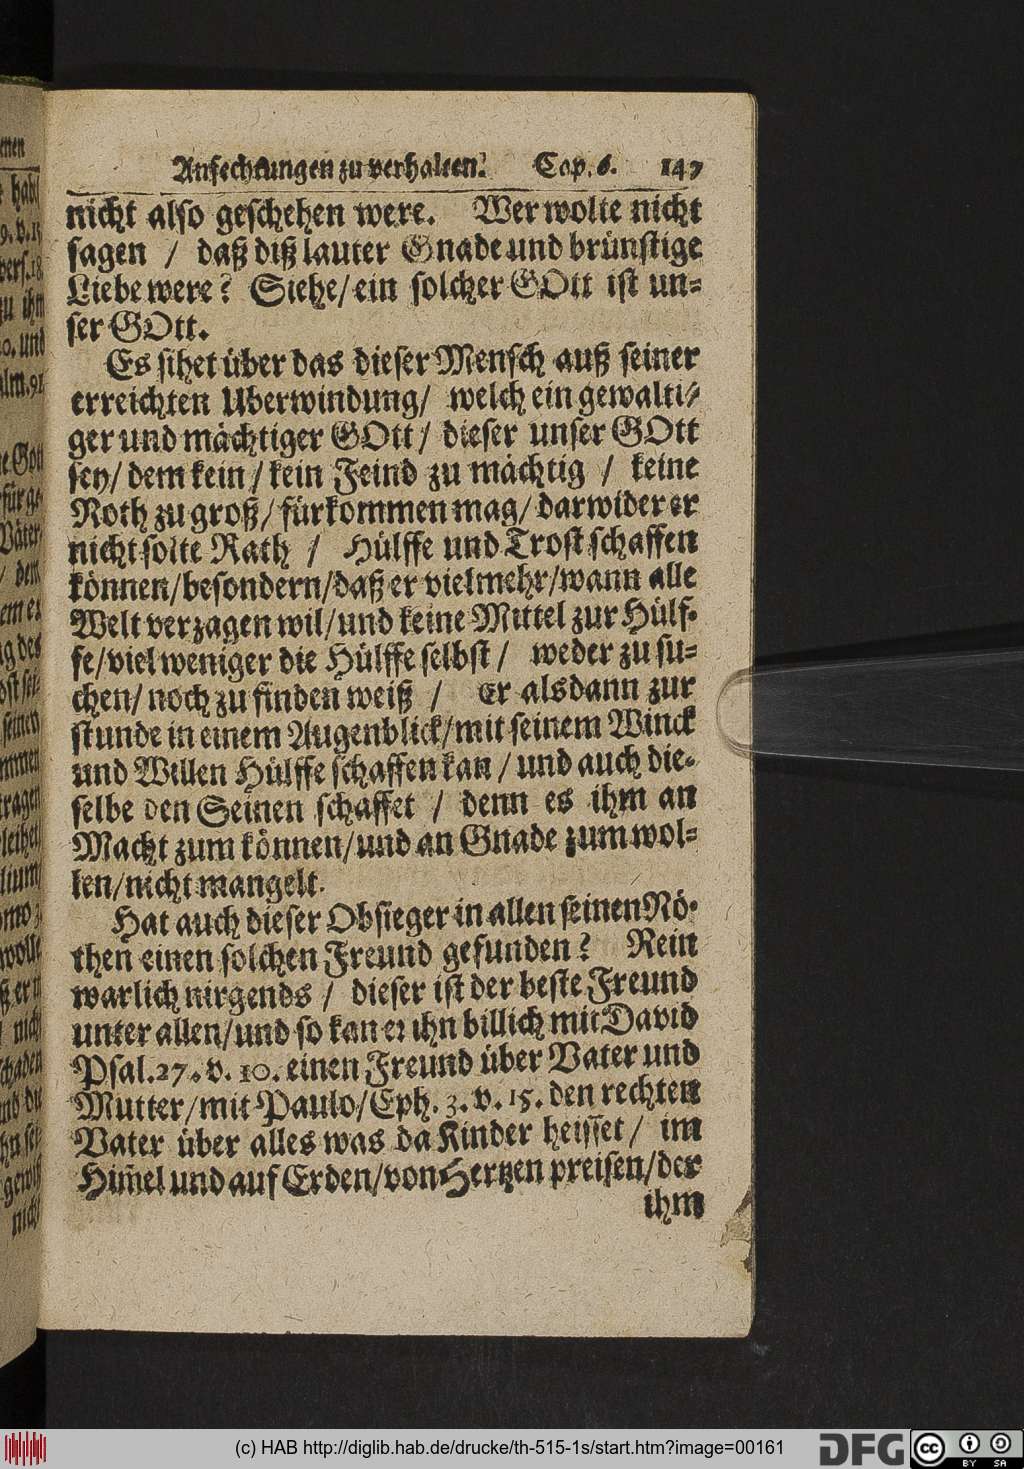 Anfechtungen zu verhalten. Cap. 6. 147
nicht also geschehen were. Wer wolte nicht
sagen / daß diß lauter Gnade und brünstige
Liebe were? Siehe/ ein solcher GOtt ist un-
ser GOtt.
Es sihet über das dieser Mensch auß seiner
erreichten Uberwindung/ welch ein gewalti-
ger und mächtiger GOtt/ dieser unser GOtt
sey/ dem kein/ kein Feind zu mächtig / keine
Noth zu groß/ fürkommen mag/ darwider er
nicht solte Rath / Hülffe und Trost schaffen
können/ besondern/ daß er vielmehr/ wann alle
Welt verzagen wil/ und keine Mittel zur Hülf-
fe/ viel weniger die Hülffe selbst / weder zu su-
chen/ noch zu finden weiß / Er alsdann zur
stunde in einem Augenblick/ mit seinem Winck
und Willen Hülffe schaffen kan / und auch die-
selbe den Seinen schaffet / denn es ihm an
Macht zum können/ und an Gnade zum wol-
len/ nicht mangelt.
Hat auch dieser Obsieger in allen seinen Nö-
then einen solchen Freund gefunden? Nein
warlich nirgends / dieser ist der beste Freund
unter allen/ und so kan er ihn billich mit David
Psal. 27. v. 10. einen Freund über Vater und
Mutter/ mit Paulo/ Eph. 3. v. 15. den rechten
Vater über alles was da Kinder heisset/ im
Him̃el und auf Erden/ von Hertzen preisen/ der
ihm
(c) HAB http://diglib.hab.de/drucke/th-515-1s/start.htm?image=00161
DFG
cc BY SA